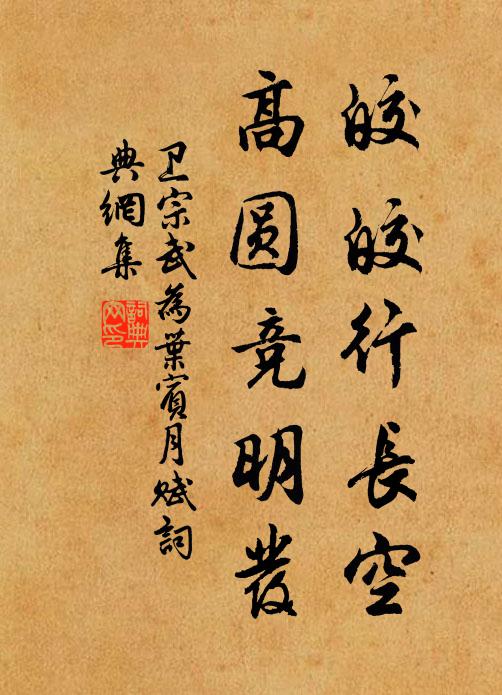 皎皎行長空
高圓竞明發
卫宗武為葉賓月赋詞
典網集
詞典网印